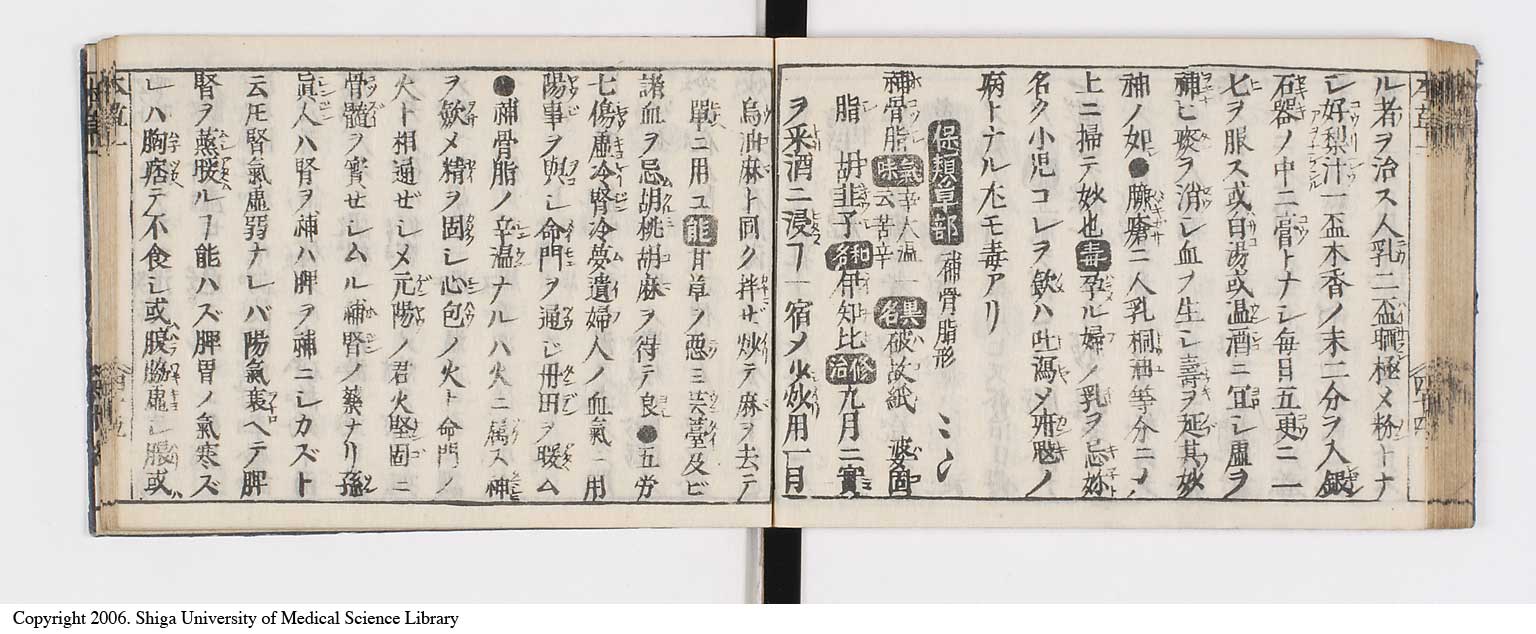 ル者ヲ治ス人乳二盃 極メ粉トナ
シ好梨汁一盃木香ノ末二分ヲ入銀
石器ノ中ニ膏トナシ毎日五更ニ一
七ヲ服ス或白湯或温酒ニ宜シ虚ヲ
補ヒ痰ヲ消シ血ヲ生シ壽ヲ延其妙
神ノ如●臁瘡ニ人乳桐油等分ニノ
上ニ掃テ妙也 毒 孕ル婦ノ乳ヲ忌妳
名ク小児コレヲ飲ハ吐瀉メ疳 ノ
病トナル尤モ毒アリ
保類草部 補骨脂形
補骨脂 氣味 辛大温一云苦辛 異名 破故紙 婆固
脂 胡韭子 和名 修治 九月ニ實
ヲ采酒ニ浸コー宿メ火 用一月
烏油麻ト同ク拌ゼ炒テ麻ヲ去テ
單ニ用ユ 能 甘草ヲ悪ミ芸薹及ビ
諸血ヲ忌胡桃胡麻ヲ得テ良●五労
七傷虚冷腎冷夢遺婦人ノ血氣ニ用
陽事ヲ興シ命門ヲ通じ丹田ヲ暖ム
●補骨脂ノ辛温ナルハ火ニ属ス神
ヲ歛メ精ヲ固シ心包ノ火ト命門ノ
火ト相通ぜシメ元陽ノ君火堅固ニ
骨髓ヲ實せシムル補腎ノ藥ナリ孫
眞人ハ腎ヲ補ハ脾ヲ補ニシカズト
云𪜈腎氣虚弱ナレバ陽氣衰ヘテ脾
腎ヲ蒸暖ルヿ能ハズ脾胃ノ氣寒ズ
レハ胸痞テ不食シ或腹脇虚シ腹或
Copyright 2006. Shiga University of Medical Science Library